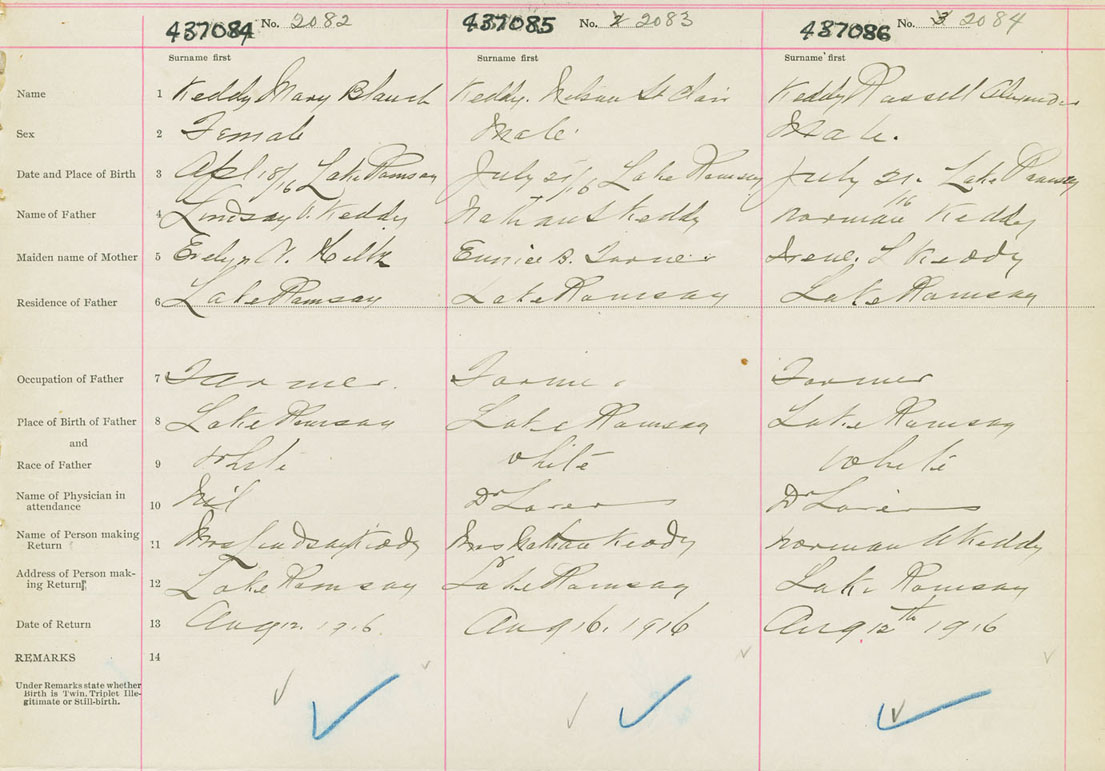 437084 No. 2082 437085 No. 2 2083 437086 No. 3 2084
Surname first Surname first Surname first
Name 1 Keddy Mary Blanch Keddy. Nelson St Clair Keddy Russell Alexander
Sex 2 Female Male Male.
Date and Place of Birth 3 Apl 18/16 Lake Ramsay July 21/16 Lake Ramsay July 21. 16 Lake Ramsey
Name of Father 4 Lindsay Keddy Nathan S Keddy Norman Keddy
Maiden name of Mother 5 Evelyn V. Eunice B. Irene. L Keddy
Residence of Father 6 Lake Ramsay Lake Ramsay Lake Ramsay
Occupation of Father 7 Farmer. Farmer Farmer
Place of Birth of Father 8 Lake Ramsay Lake Ramsay Lake Ramsay
and
Race of Father 9 White White White
Name of Physician in
attendance 10 Nil Dr Dr
Name of Person making
Return 11 Mrs Lindsay Keddy Mrs Nathan Keddy Norman W Keddy
Address of Person mak-
ing Return 12 Lake Ramsay Lake Ramsay Lake Ramsay
Date of Return 13 Aug 12. 1916. Aug 16. 1916 Aug 12th 1916
REMARKS 14
Under Remarks state whether
Birth is Twin, Triplet Ille-
gitimate or Still-birth.